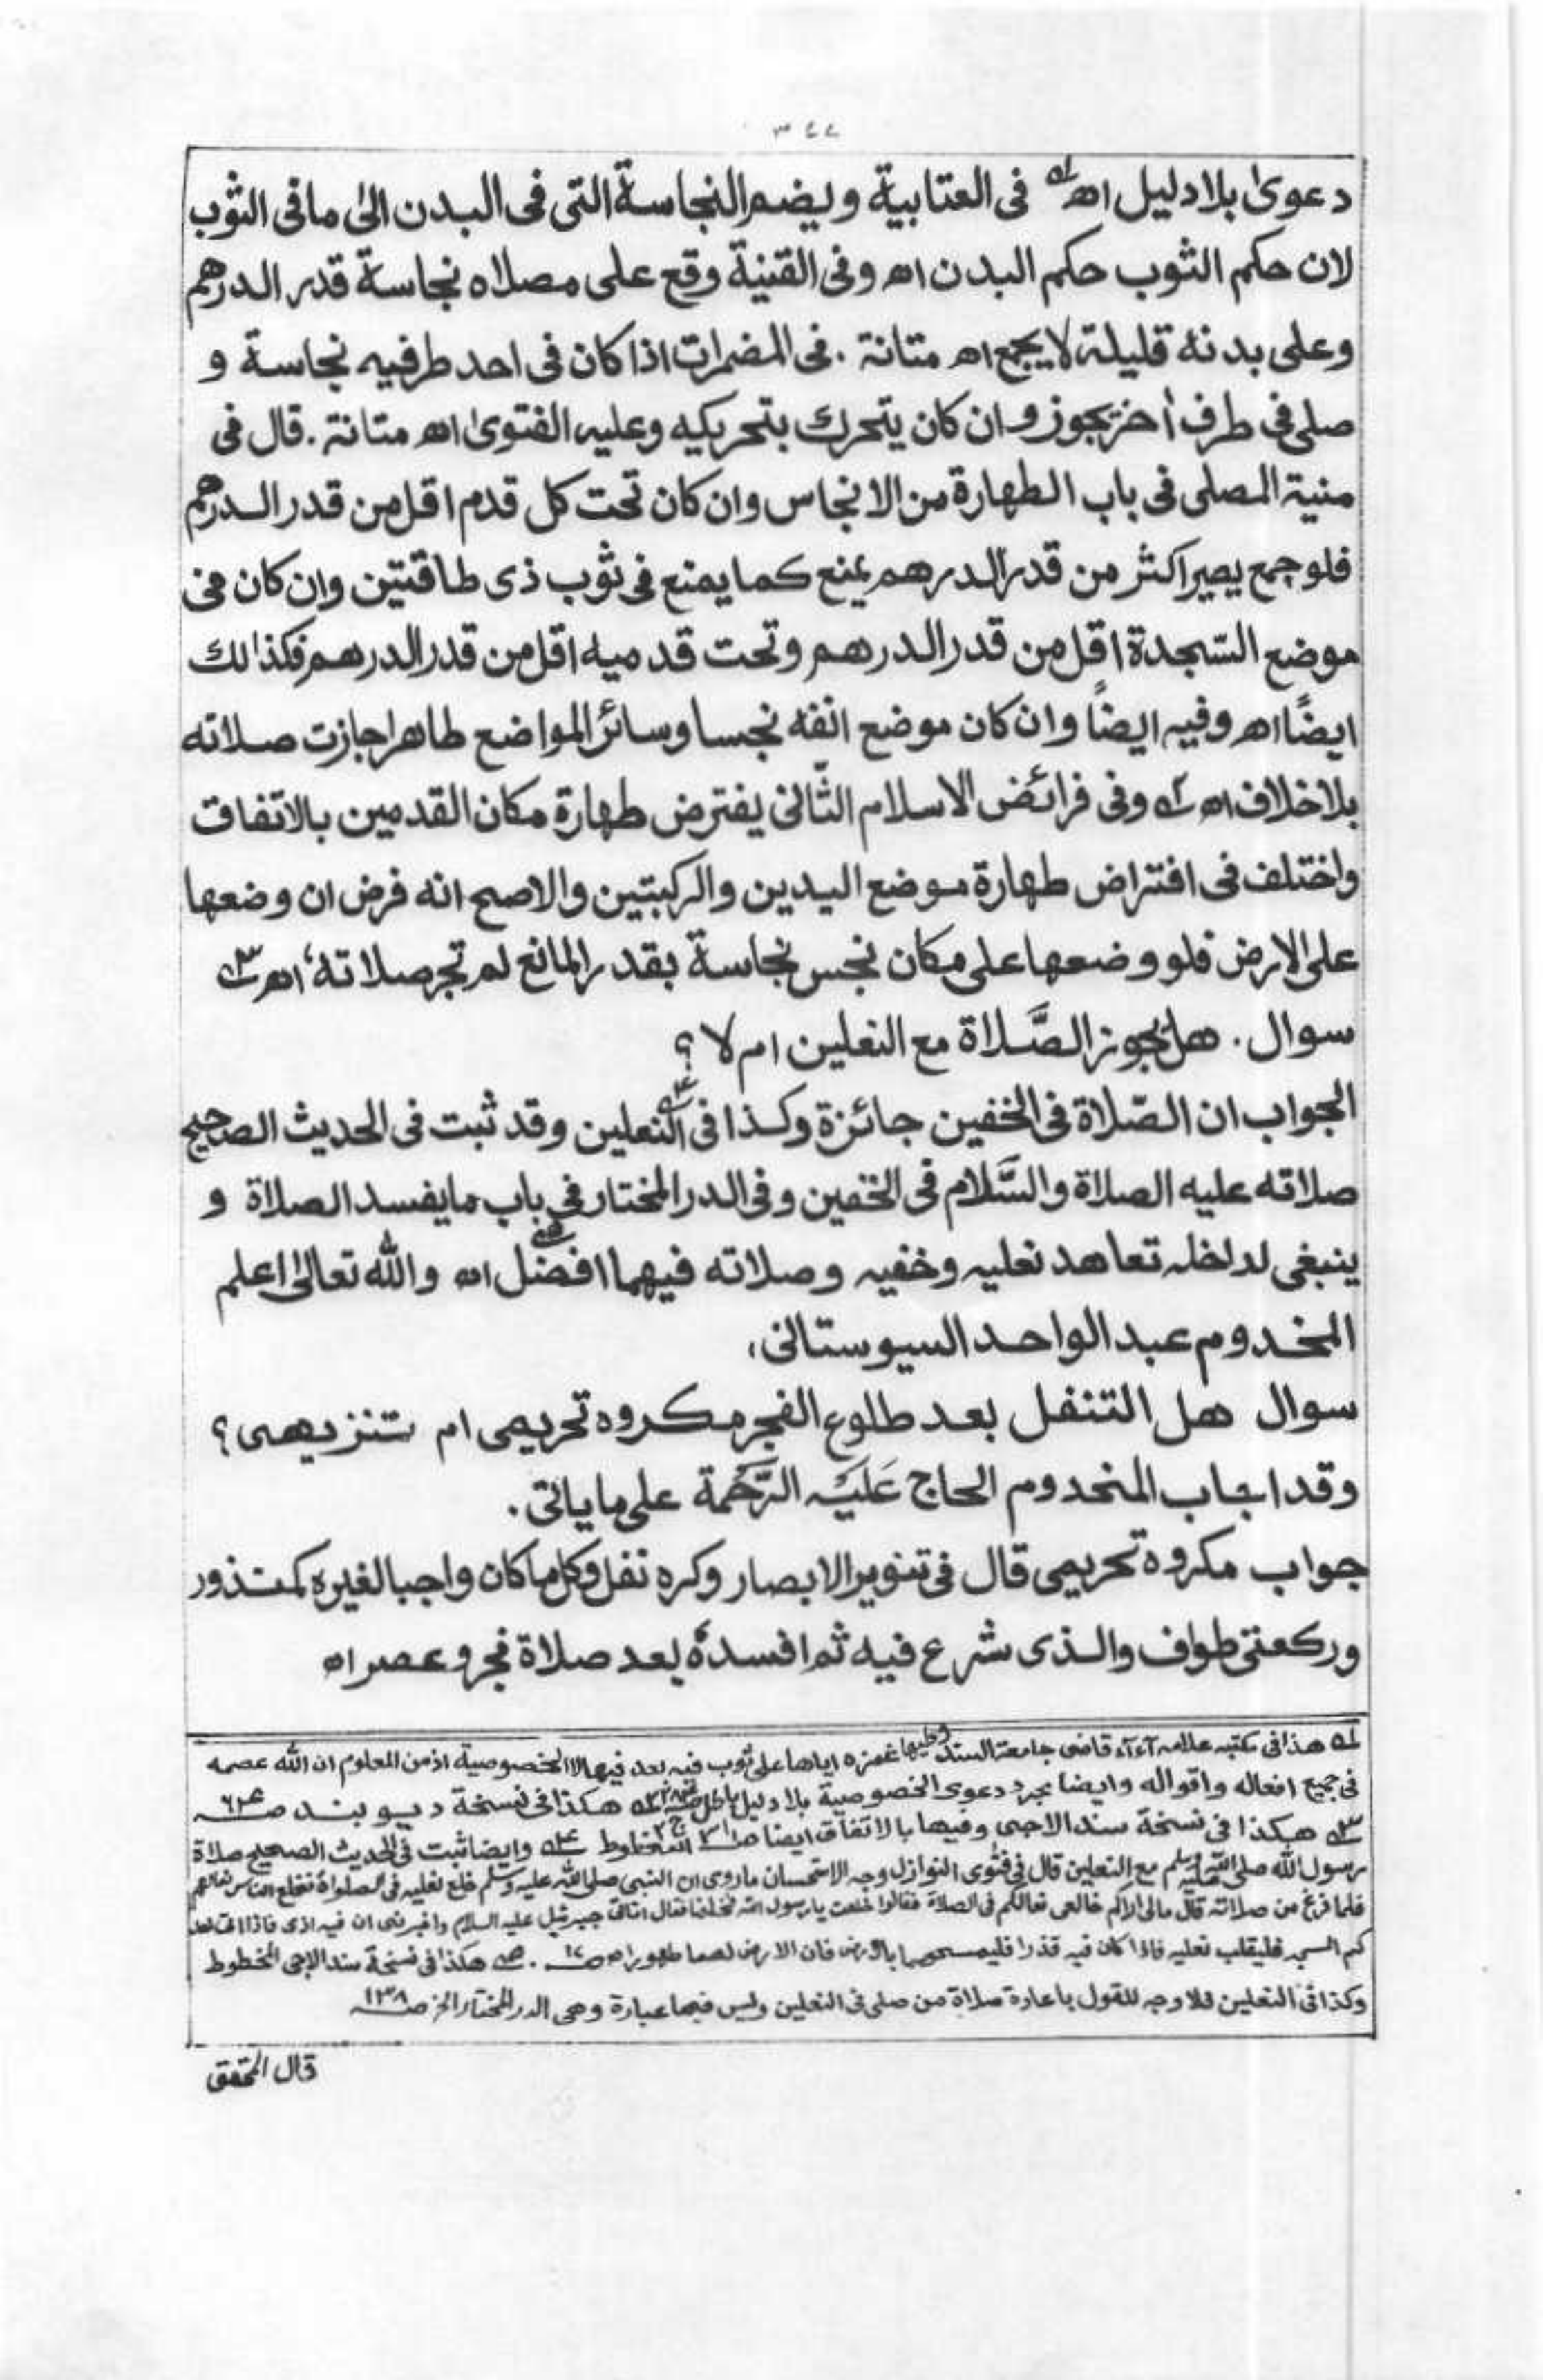 ٣٤٤
دعوىٰ بلا دليل اھ لہ فى العتابية ويضم النجاسة التى فى البدن الىٰ ما فى الثوب
لان حكم الثوب حكم البدن اھ وفى القنية وقع على مصلاه نجاسة قدر الدرهم
وعلى بدنه قليلة لا يجمع اھ متانة . فى المضمرات اذا كان فى احد طرفيه نجاسة و
صلى فى طرف أخر يجوز وان كان يتحرك بتحريكه وعليه الفتوىٰ اھ متانة . قال فى
منية المصلى فى باب الطهارة من الانجاس وان كان تحت كل قدم اقل من قدر الدرهم
فلو جمع يصير اكثر من قدر الدرهم يمنع كما يمنع فى ثوب ذى طاقتين وان كان فى
موضع السّجدة اقل من قدر الدرهم وتحت قدميه اقل من قدر الدرهم فكذالك
ايضًا اھ وفيه ايضاً وان كان موضع انفه نجسا وسائر المواضع طاهرا جازت صلاته
بلا خلاف اھ ٢ہ وفى فرائض الاسلام الثّانى يفترض طهارة مكان القدمين بالاتفاق
واختلف فى افتراض طهارة موضع اليدين والركبتين والاصح انه فرض ان وضعها
على الارض فلو وضعها على مكان نجس نجاسة بقدر المانع لم تجز صلاته، اھ ٣ہ
سوال . هل يجوز الصَّلاة مع النعلين ام لا ؟
الجواب ان الصّلاة فى الخفين جائزة وكذا فى النعلين ٤ہ وقد ثبت فى الحديث الصحيح
صلاته عليه الصلاة والسَّلام فى الخفين وفى الدر المختار فى باب ما يفسد الصلاة و
ينبغى لداخله تعاهد نعليه وخفيه وصلاته فيهما افضل ٥ہ اھ والله تعالىٰ اعلم
المخدوم عبد الواحد السيوستانى،
سوال هل التنفل بعد طلوع الفجر مكروه تحريمى ام تنزيهى ؟
وقد اجاب المخدوم الحاج عَلَيْهِ الرَّحْمَة على ما ياتى .
جواب مكروه تحريمى قال فى تنوير الابصار وكره نفل وكل ما كان واجبا لغيره كمنذور
وركعتى طواف والذى شرع فيه ثم افسدهٗ بعد صلاة فجر وعصر اھ
لہ هذا فى مكتبہ علامہ آء آء قاضى جامعة السند وفيها غمزه اياها على ثوب فيه بعد فيها لا الخصوصية اذ من المعلوم ان الله عصمه
فى جميع افعاله واقواله وايضا مجرد دعوى الخصوصية بلا دليل باطل ٢ہ هكذا فى نسخة ديوبند صـ ٦٤
٣ہ هكذا فى نسخة سند الاجى وفيها بالاتفاق ايضا ٤ہ وايضا ثبت فى الحديث الصحيح صلاة
رسول الله صلى الله عليه وسلم مع النعلين قال فى فتوى النوازل وجه الاستحسان ما روى ان النبى صلى الله عليه وسلم خلع نعليه فى الصلواة فخلع الناس نعالهم
فلما فرغ من صلاته قال مالى اراكم خالعى نعالكم فى الصلاة فقالوا خلعت يا رسول الله فخلعنا فقال اتانى جبرئيل عليه السلام واخبرنى ان فيه اذى فاذا اتى احد
كم المسجد فليقلب نعليه فاذا كان فيه قذرا فليمسحهما بالارض فان الارض لهما طهورا اھ صـ ١٧ . ٥ہ هكذا فى نسخة سند الاجى المخطوط
وكذا فى النعلين فلا وجه للقول باعادة صلاة من صلى فى النعلين وليس فيها عبارة وهى الدر المختار الخ صـ ١٣٨
قال المحقق